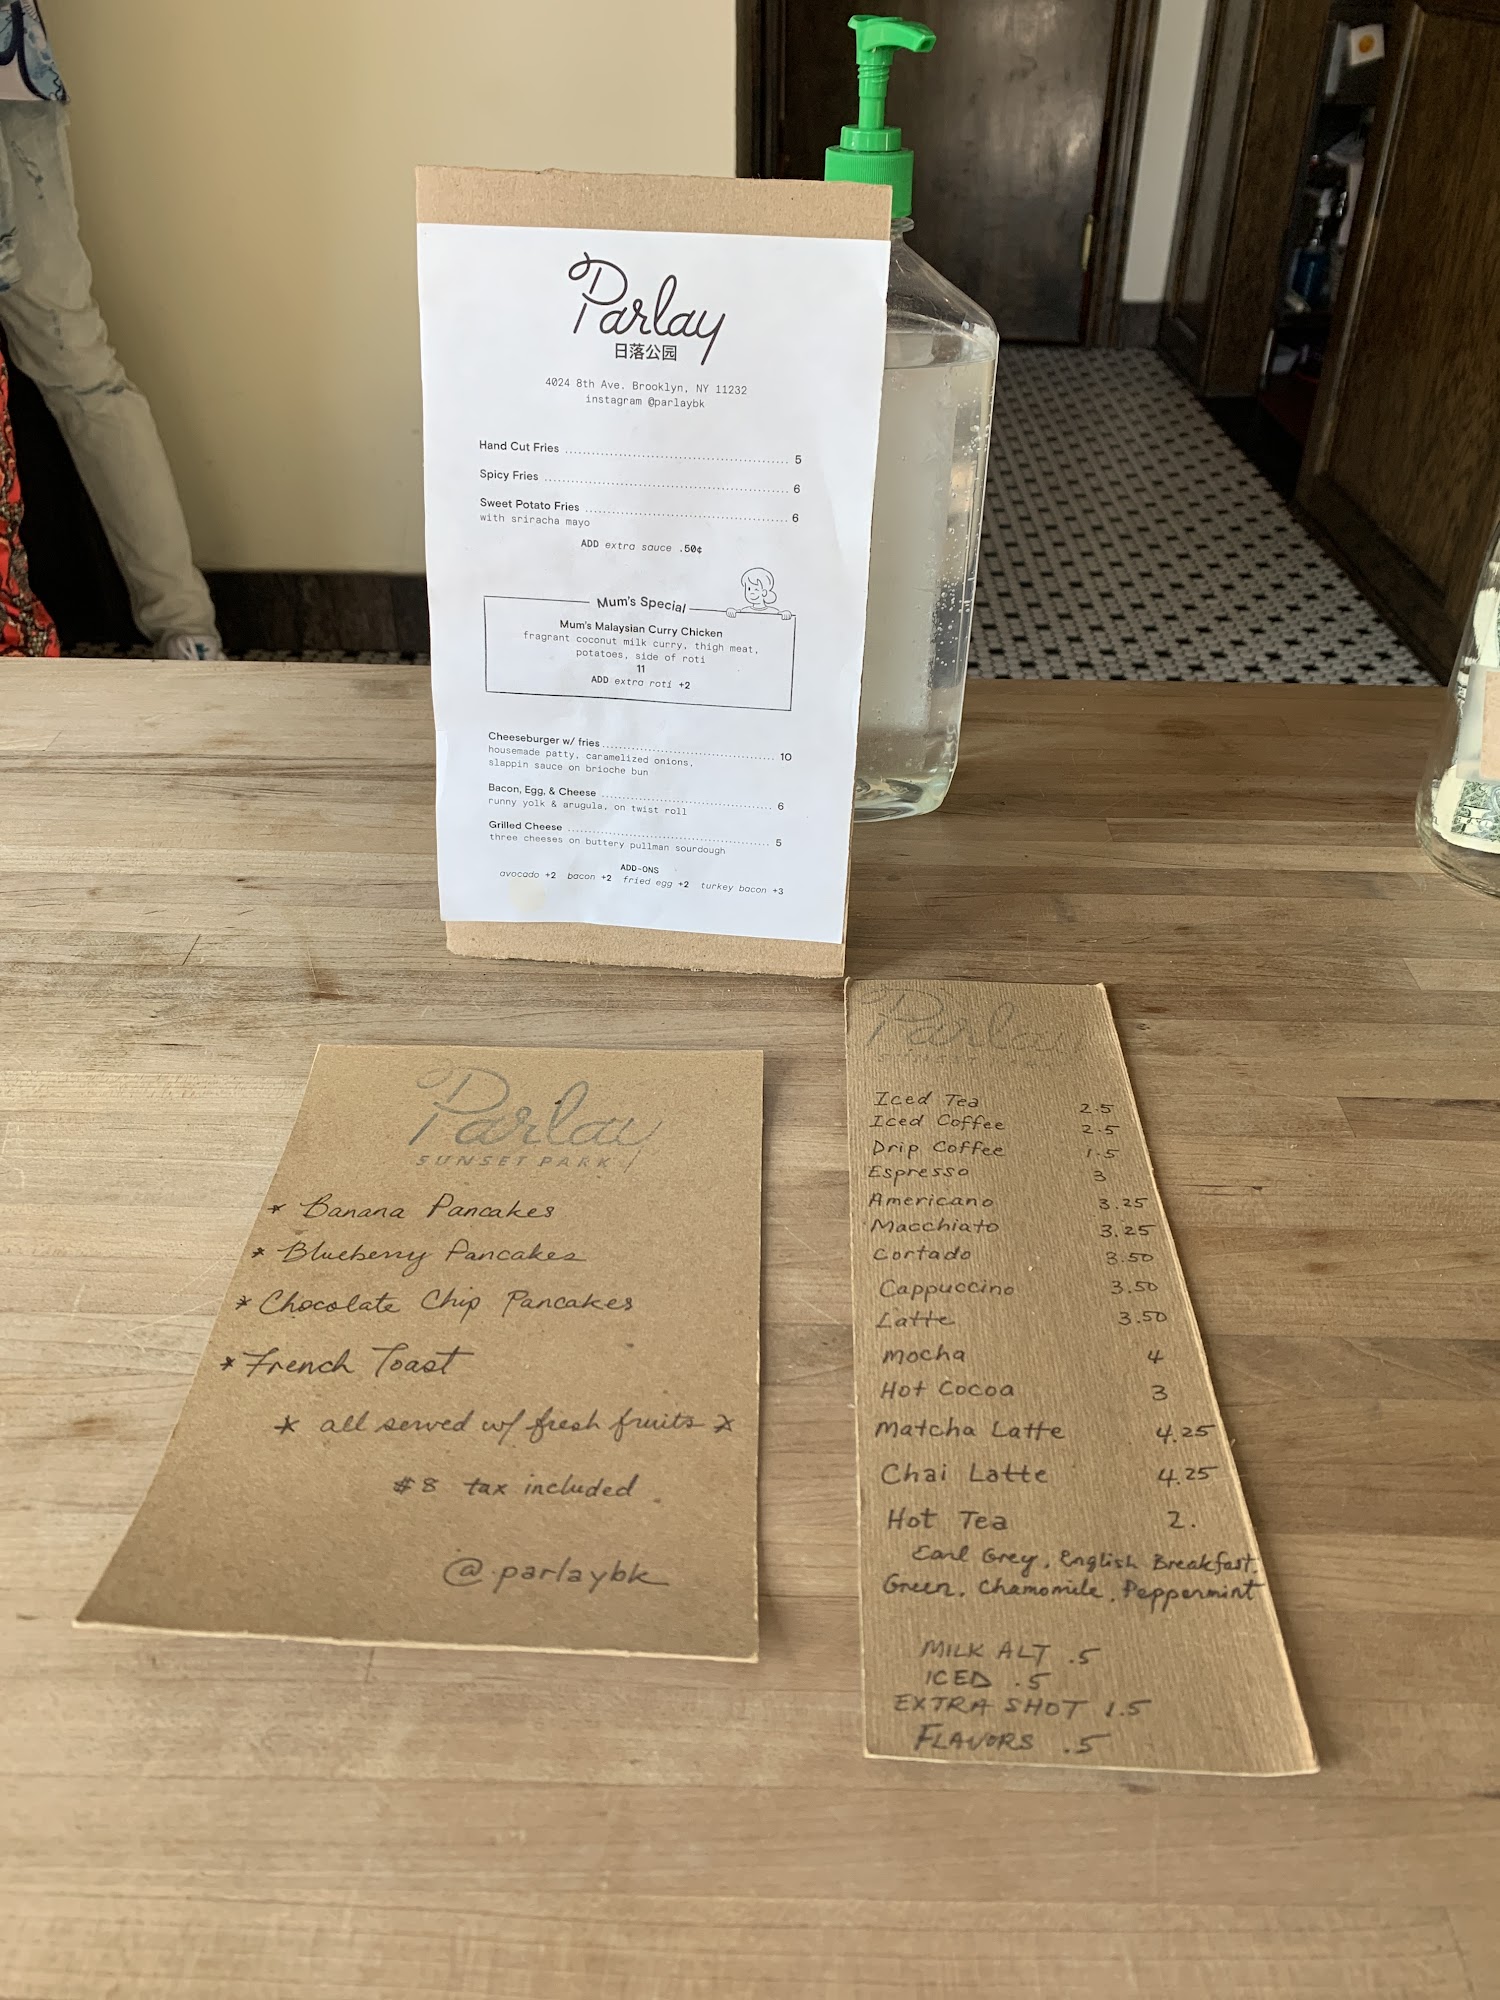 Parlay
日落公园
4024 8th Ave. Brooklyn, NY 11232
instagram @parlaybk
Hand Cut Fries 5
Spicy Fries 6
Sweet Potato Fries 6
with sriracha mayo
ADD extra sauce .50¢
Mum's Special
Mum's Malaysian Curry Chicken
fragrant coconut milk curry, thigh meat,
potatoes, side of roti
11
ADD extra roti +2
Cheeseburger w/ fries 10
housemade patty, caramelized onions,
slappin sauce on brioche bun
Bacon, Egg, & Cheese 6
runny yolk & arugula, on twist roll
Grilled Cheese 5
three cheeses on buttery pullman sourdough
ADD-ONS
avocado +2 bacon +2 fried egg +2 turkey bacon +3
Parlay
SUNSET PARK
* Banana Pancakes
* Blueberry Pancakes
* Chocolate Chip Pancakes
* French Toast
* all served w/ fresh fruits *
$8 tax included
@parlaybk
Parlay
SUNSET
Iced Tea 2.5
Iced Coffee 2.5
Drip Coffee 1.5
Espresso 3
Americano 3.25
Macchiato 3.25
Cortado 3.50
Cappuccino 3.50
Latte 3.50
Mocha 4
Hot Cocoa 3
Matcha Latte 4.25
Chai Latte 4.25
Hot Tea 2.
Earl Grey, English Breakfast,
Green, Chamomile, Peppermint
MILK ALT .5
ICED .5
EXTRA SHOT 1.5
FLAVORS .5